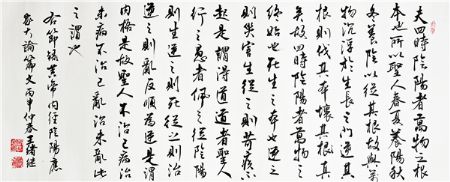 夫四時陰陽者萬物之根
本也所以聖人春夏養陽秋
冬養陰以從其根故與萬
物沉浮於生長之門逆其
根則伐其本壞其真
矣故四時陰陽者萬物之
終始也死生之本也逆之
則災害生從之則苛疾不
起是謂得道道者聖人
行之愚者佩之從陰陽
則生逆之則死從之則治
逆之則亂反順為逆是謂
內格是故聖人不治已病治
未病不治已亂治未亂此
之謂也
右節錄黃帝內經陰陽應
象大論篇文丙申仲春